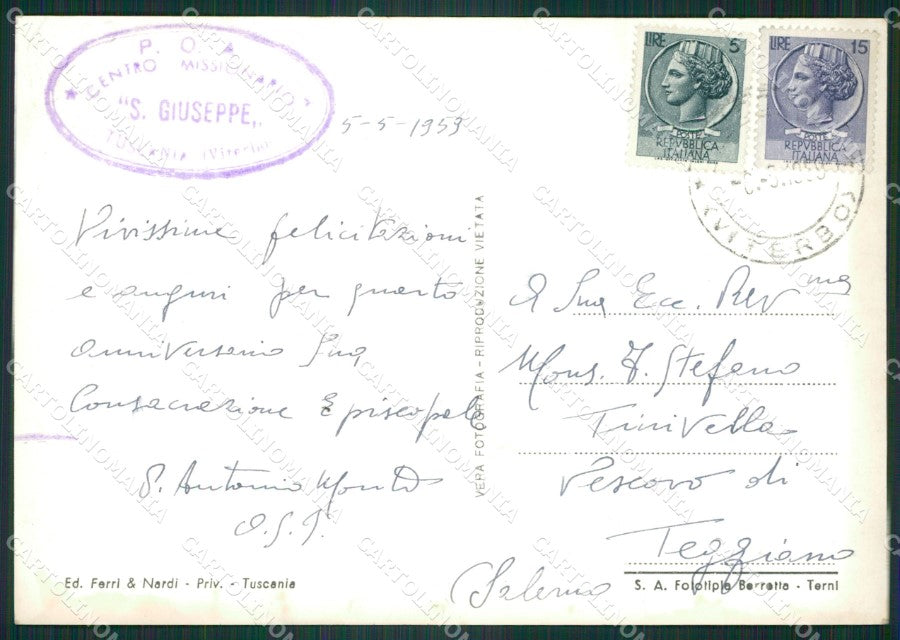 P. O. A.
CENTRO MISSIONARIO
"S. GIUSEPPE,,
TUSCANIA (Viterbo)
5-5-1959
LIRE 5
POSTE
REPVBBLICA
ITALIANA
LIRE 15
POSTE
REPVBBLICA
ITALIANA
(VITERBO)
Vivissime felicitazioni
e auguri per quarto
anniversario Sua
Consacrazione Episcopale
S. Antonio
VERA FOTOGRAFIA - RIPRODUZIONE VIETATA
A Sua Ecc. Rev ma
Mons. F. Stefano
Tinivella
Vescovo di
Teggiano
(Salerno)
Ed. Ferri & Nardi - Priv. - Tuscania
S. A. Fototipia Berretta - Terni
CARTOLINOMANIA